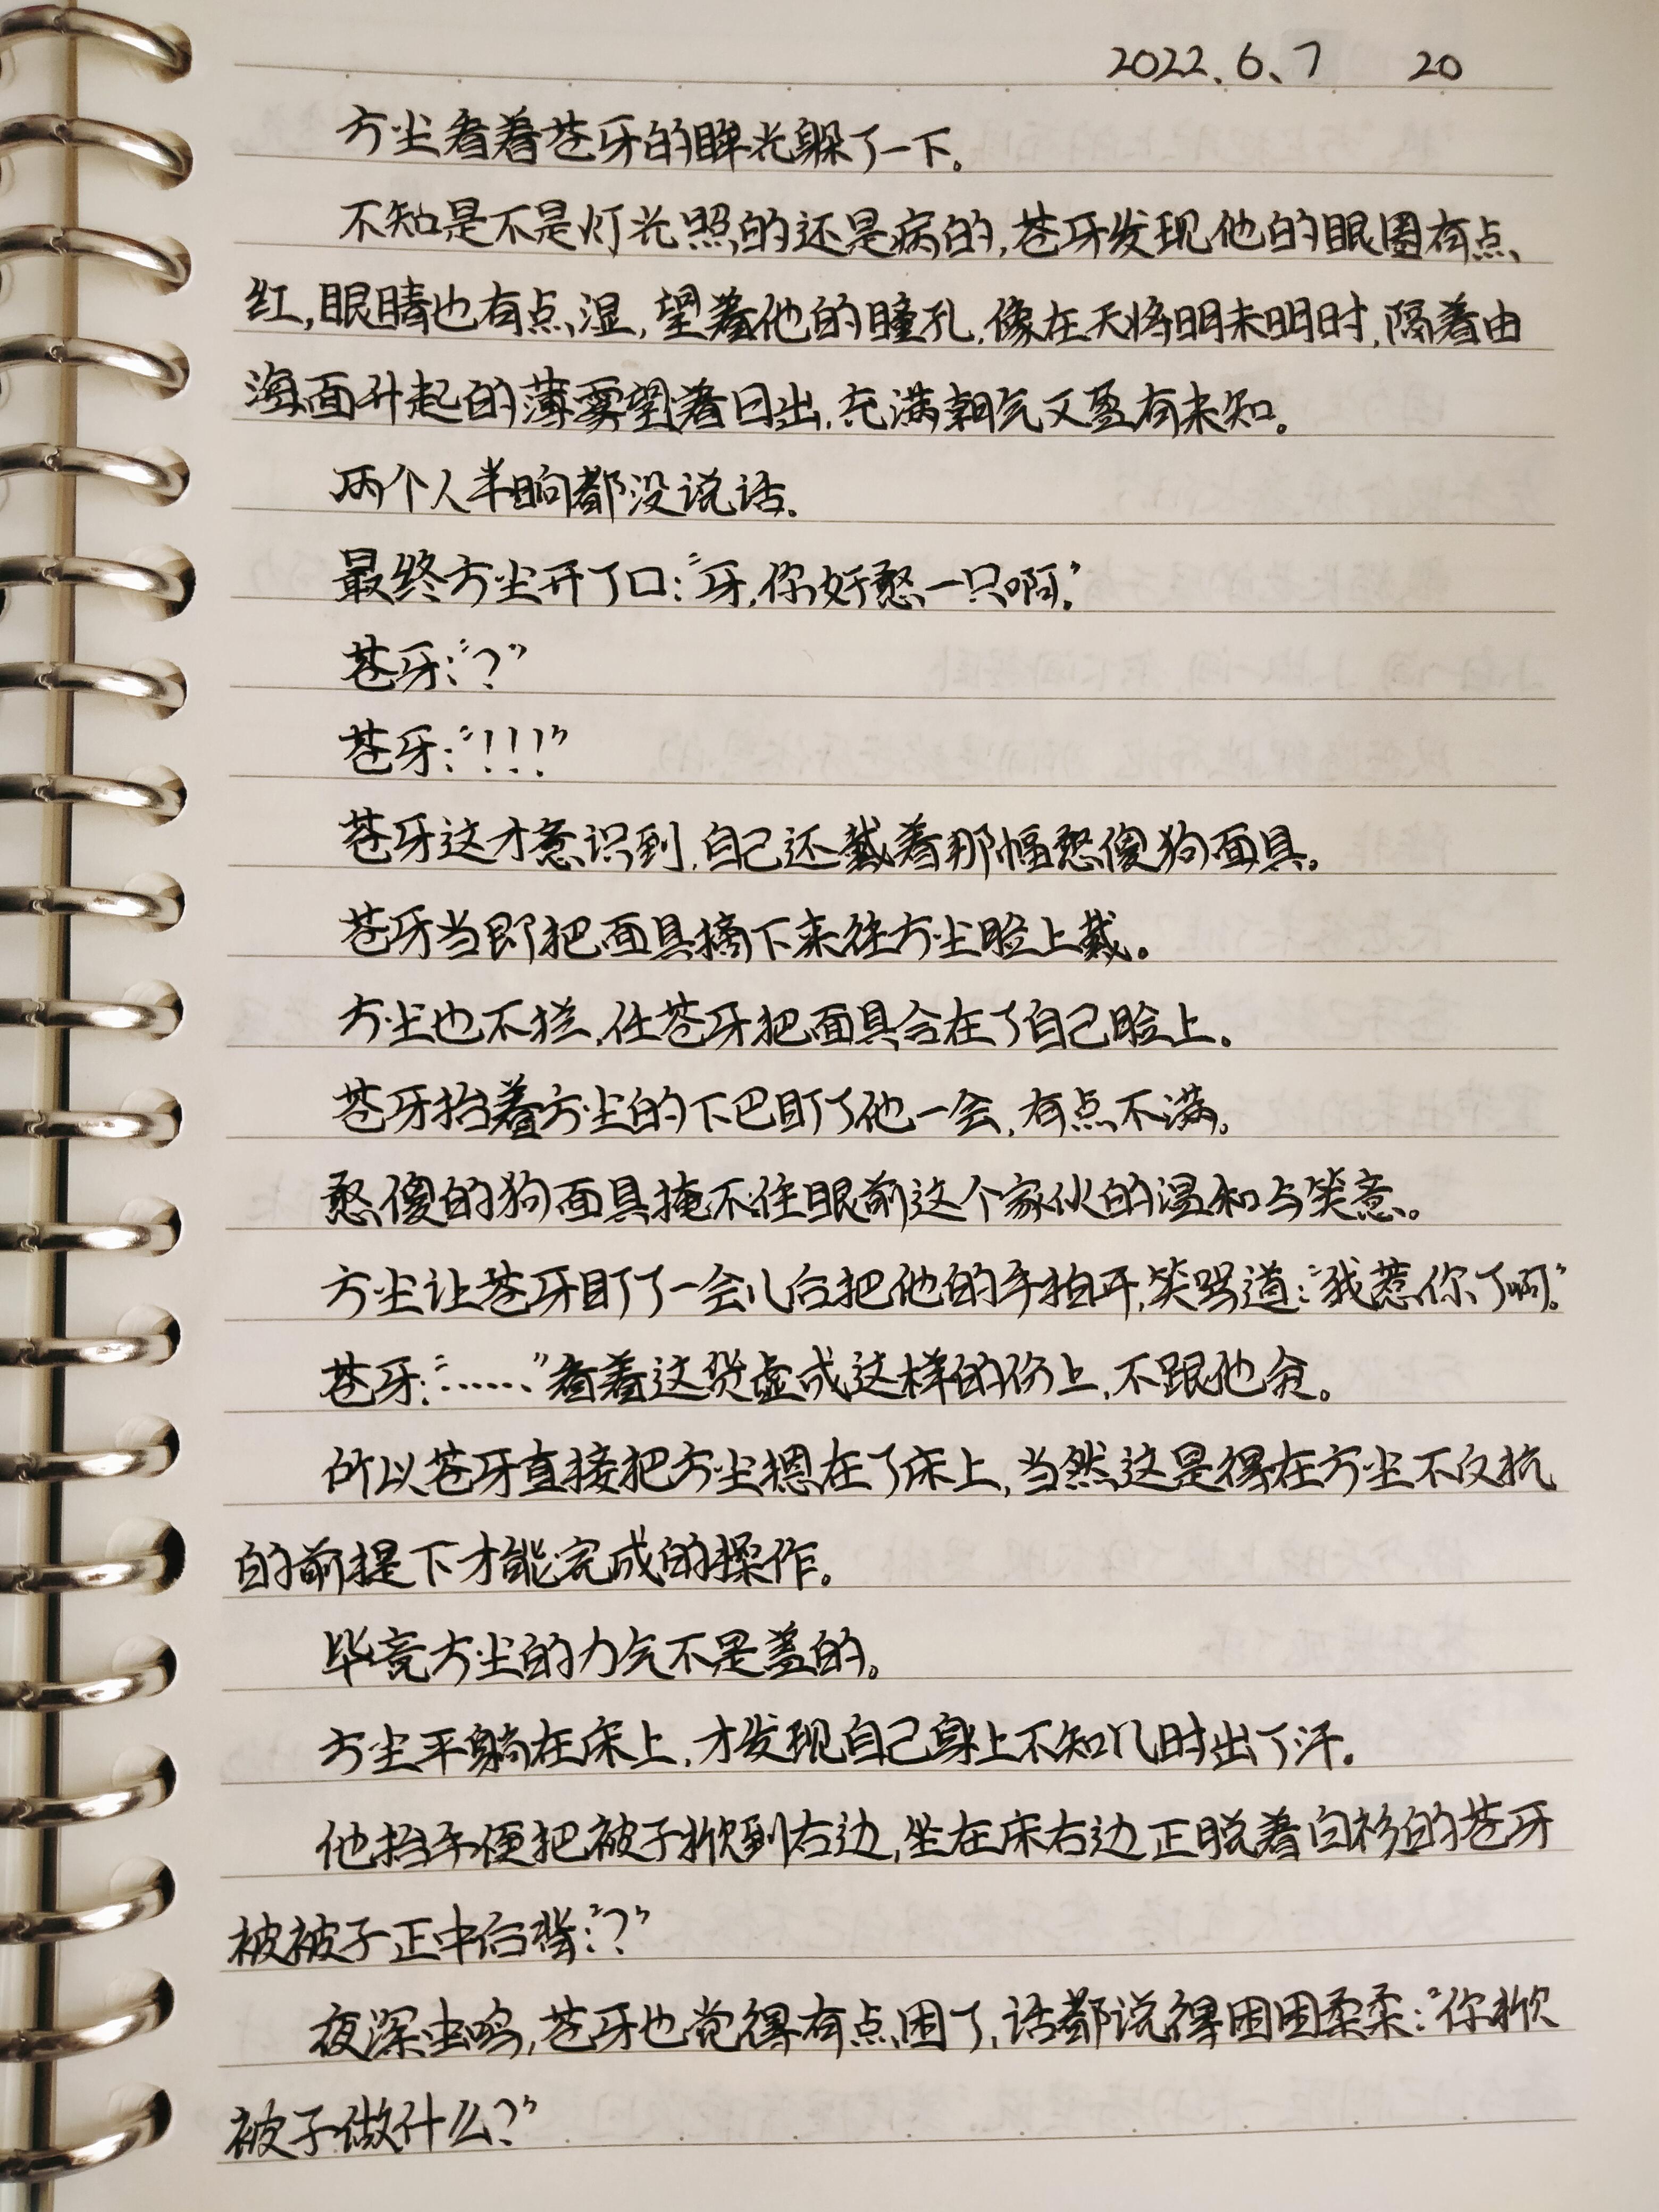 2022.6.7 20
方尘看着苍牙的眸光躲了一下。
不知是不是灯光照的还是病的,苍牙发现他的眼圈有点
红,眼睛也有点湿,望着他的瞳孔,像在天将明未明时,隔着由
海面升起的薄雾望着日出,充满朝气又盈有未知。
两个人半晌都没说话。
最终方尘开了口:“牙,你好憨一只啊。”
苍牙:“?”
苍牙:“!!!”
苍牙这才意识到,自己还戴着那幅憨傻狗面具。
苍牙当即把面具摘下来往方尘脸上戴。
方尘也不拦,任苍牙把面具合在了自己脸上。
苍牙抬着方尘的下巴盯了他一会,有点不满。
憨傻的狗面具掩不住眼前这个家伙的温和与笑意。
方尘让苍牙盯了一会儿后把他的手拍开,笑骂道:“我惹你了啊。”
苍牙:“……”看着这货虚成这样的份上,不跟他贫。
所以苍牙直接把方尘摁在了床上,当然这是得在方尘不反抗
的前提下才能完成的操作。
毕竟方尘的力气不是盖的。
方尘平躺在床上,才发现自己身上不知几时出了汗。
他抬手便把被子掀到右边,坐在床右边正脱着白衫的苍牙
被被子正中后背:“?”
夜深虫鸣,苍牙也觉得有点困了,话都说得困困柔柔:“你掀
被子做什么?”